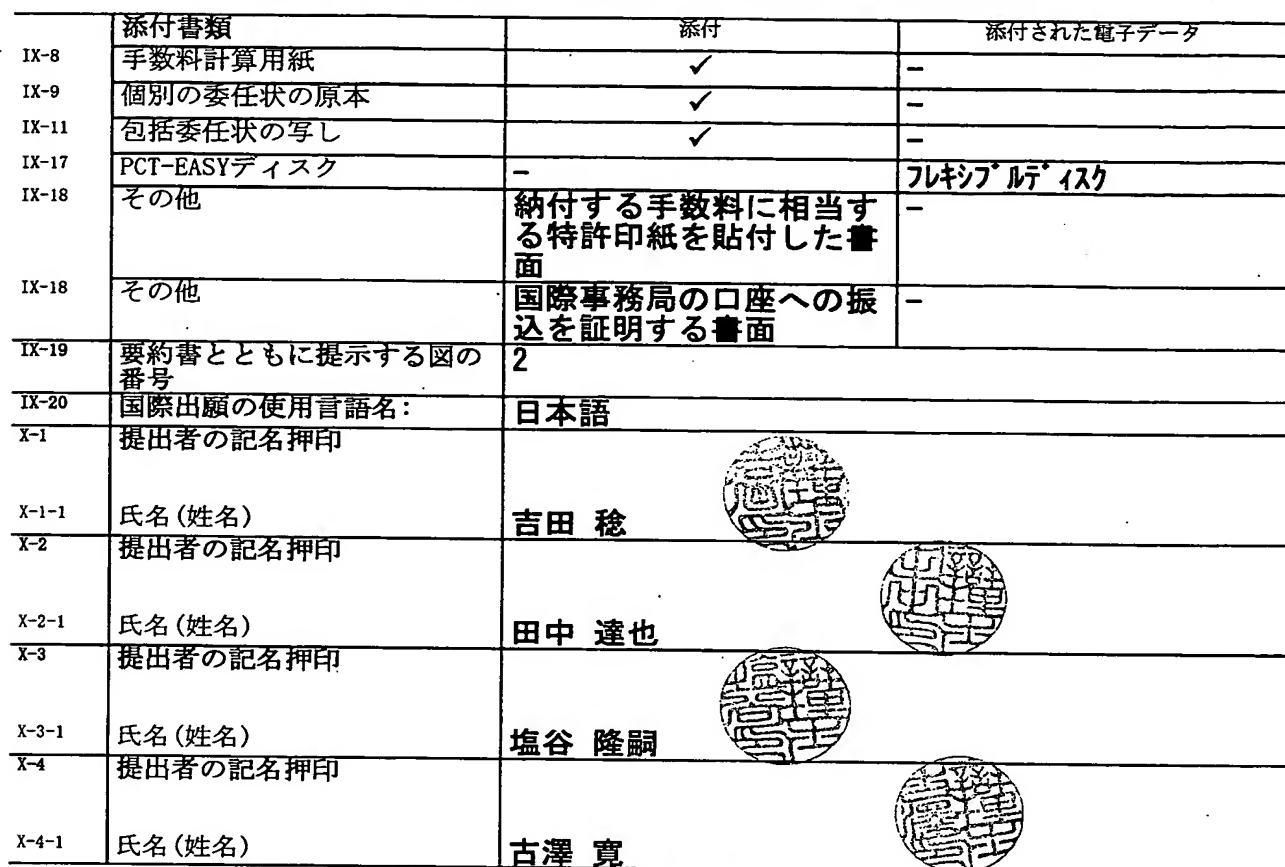 添付書類 添付 添付された電子データ
IX-8 手数料計算用紙 ✓ –
IX-9 個別の委任状の原本 ✓ –
IX-11 包括委任状の写し ✓ –
IX-17 PCT-EASYディスク – フレキシブルディスク
IX-18 その他 納付する手数料に相当す –
る特許印紙を貼付した書
面
IX-18 その他 国際事務局の口座への振 –
込を証明する書面
IX-19 要約書とともに提示する図の 2
番号
IX-20 国際出願の使用言語名: 日本語
X-1 提出者の記名押印
X-1-1 氏名(姓名) 吉田 稔
X-2 提出者の記名押印
X-2-1 氏名(姓名) 田中 達也
X-3 提出者の記名押印
X-3-1 氏名(姓名) 塩谷 隆嗣
X-4 提出者の記名押印
X-4-1 氏名(姓名) 古澤 寛